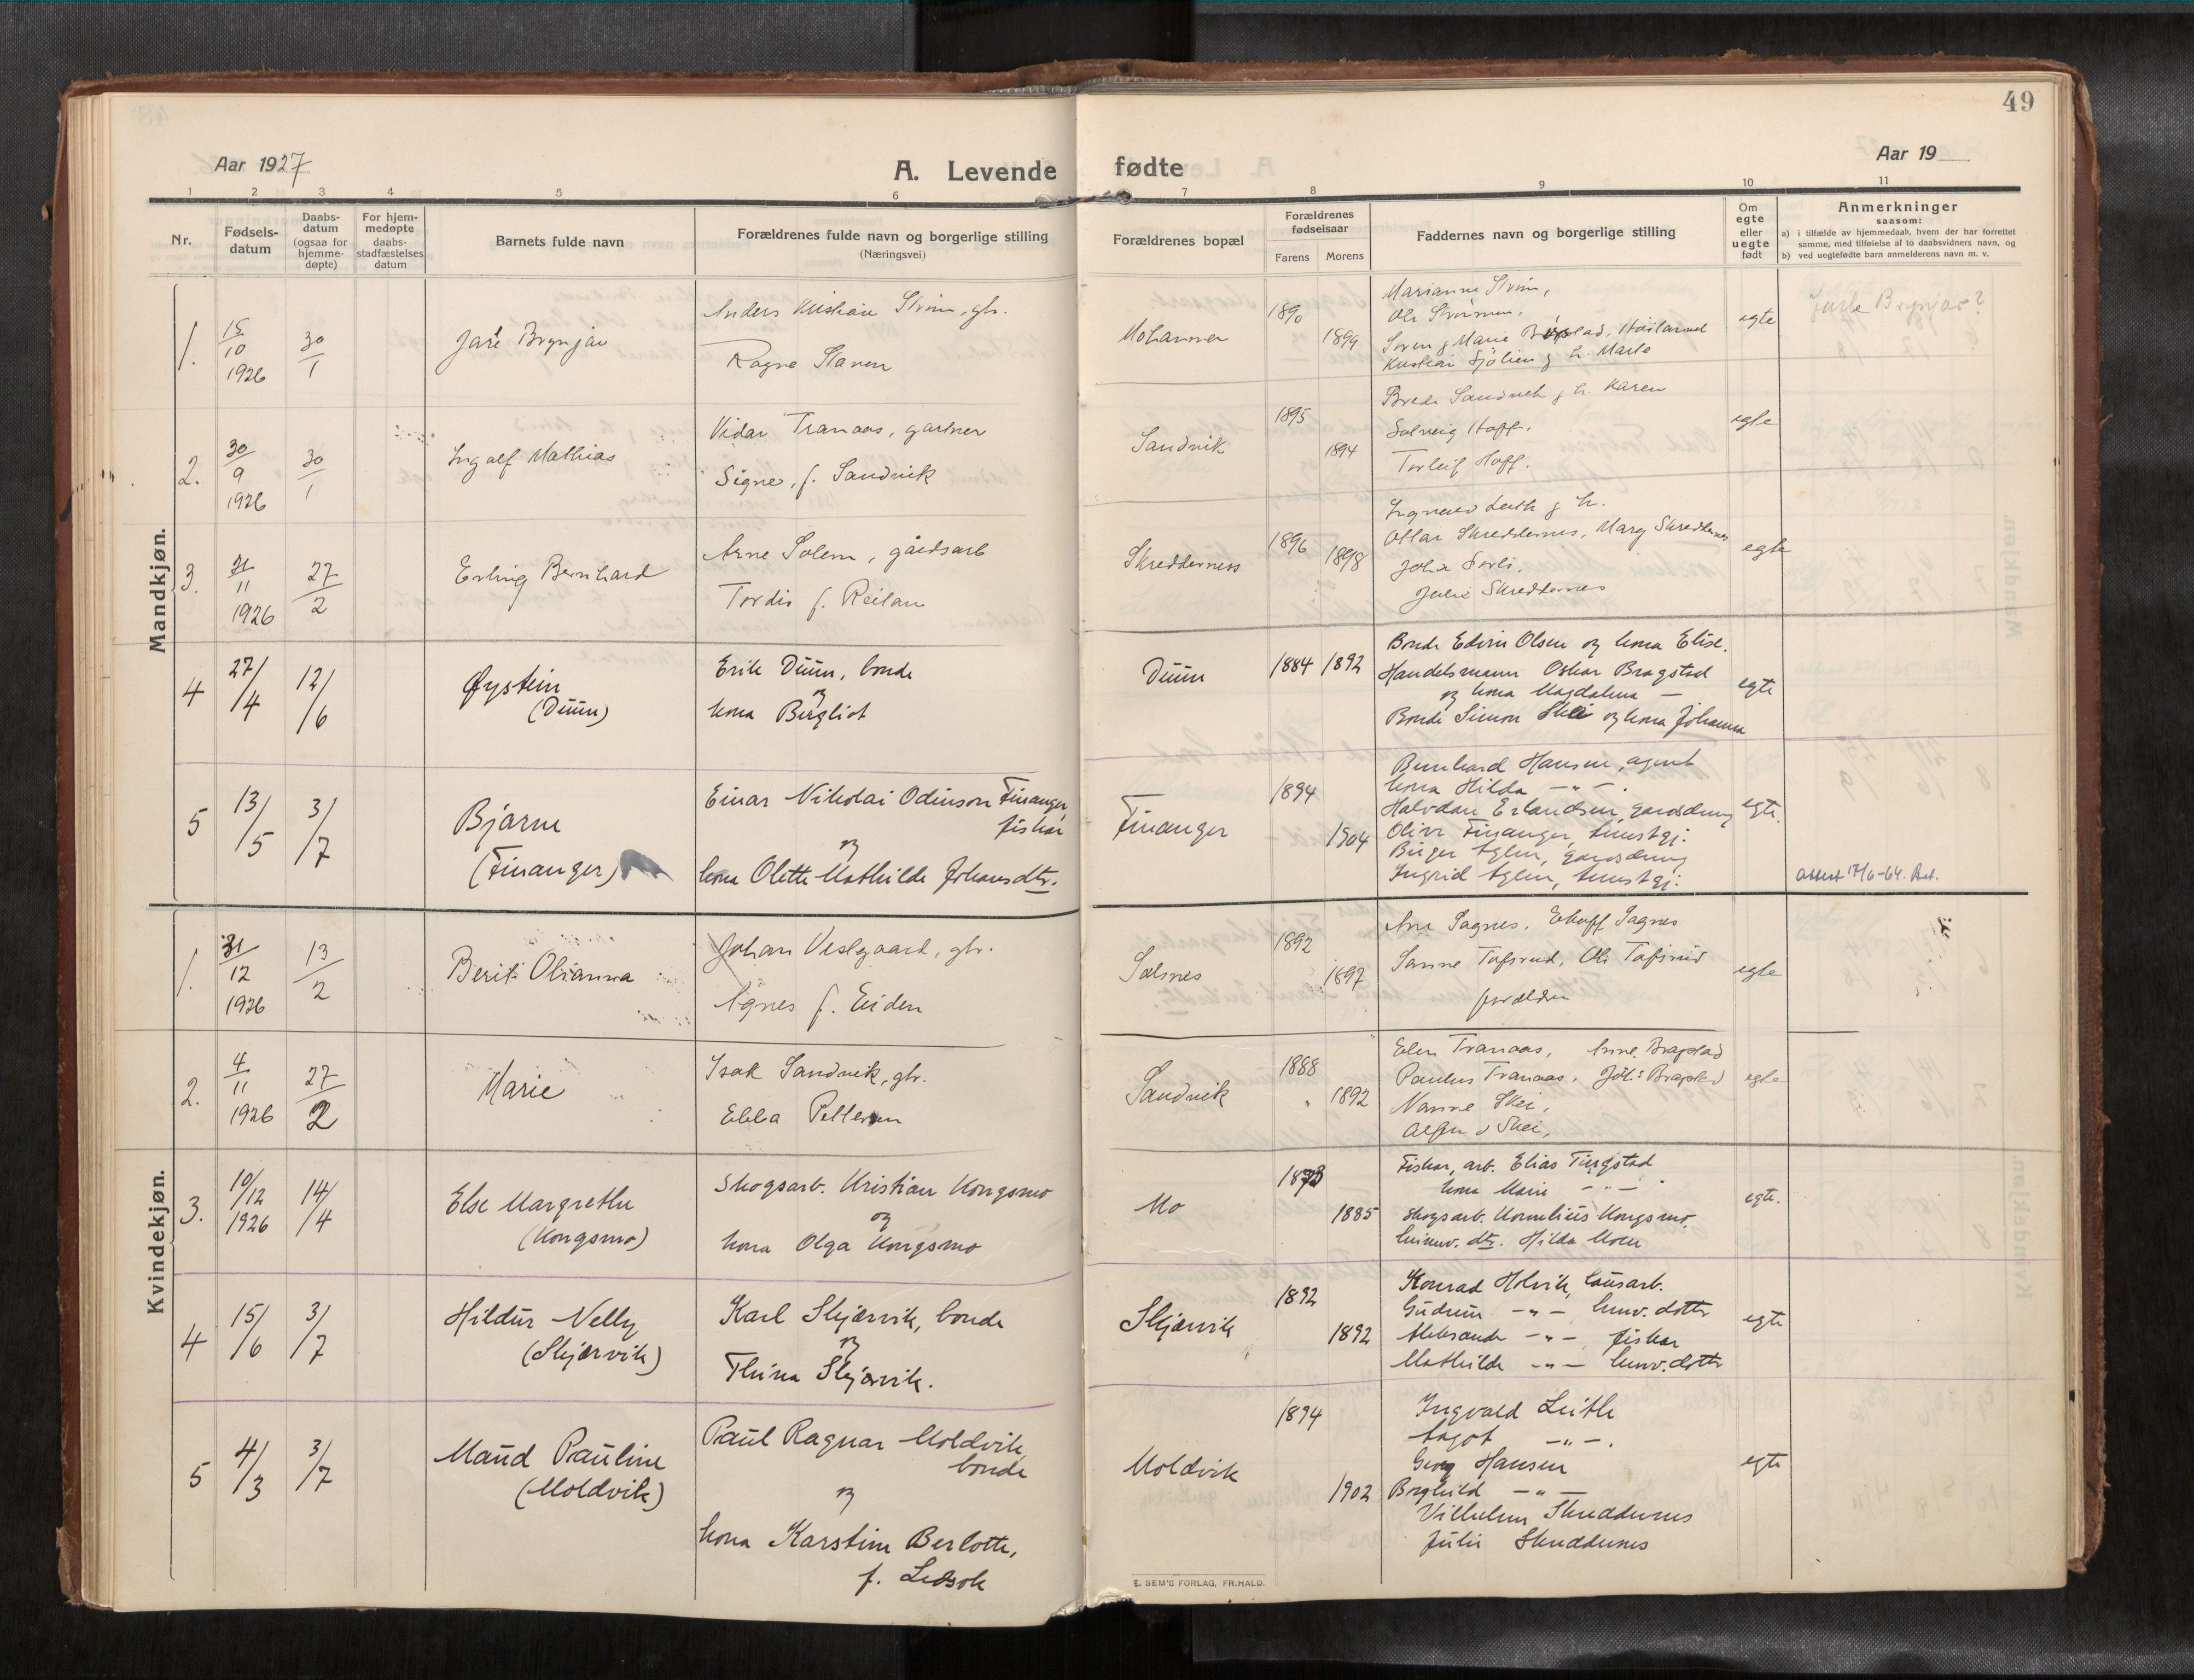 49
Aar 1927
A. Levende
fødte
Aar 19
1 2 3 4 5 6 7 8 9 10 11
Nr.
Fødsels-
datum
Daabs-
datum
(ogsaa for
hjemme-
døpte)
For hjem-
medøpte
daabs-
stadfæstelses
datum
Barnets fulde navn
Forældrenes fulde navn og borgerlige stilling
(Næringsvei)
Forældrenes bopæl
Forældrenes
fødselsaar
Farens Morens
Faddernes navn og borgerlige stilling
Om
egte
eller
uegte
født
Anmerkninger
saasom:
a) i tilfælde av hjemmedaab, hvem der har forrettet
samme, med tilføielse af to daabsvidners navn, og
b) ved uegtefødte barn anmelderens navn m. v.
Mandkjøn.
1.
15/10 1926
30/1
Jarle Brynjar
Anders Kristian Strøm, gbr.
Ragna
1890
1899
Marianne Strøm,
egte
Jarle Brynjar?
2.
30/9 1926
30/1
Ingolf Mathias
Vidar Tranaas, gartner
Signe, f. Sandvik
Sandvik
1895
1894
Solveig Hoff.
Torleif Hoff.
egte
3.
11 1926
27/2
Erling Bernhard
Arne Solem, gårdsarb
Tordis f. Reilan
Skredderness
1896
1898
Ottar Skreddernes, Mary Skreddernes
Julie Skreddernes
egte
4
27/4
12/6
Øystein
(Duun)
Erik Duun, bonde
og
kona Bergliot
Duun
1884 1892
Bonde Edvin Olsen og kona Elise.
Handelsmann Oskar Bragstad
og kona Magdalena —
Bonde Simon Skei og kona Johanna
egte
5
13/5
3/7
Bjarne
(Finanger)
Einar Nikolai Odinson Finanger,
fiskar
og
kona Olette Mathilde Johansdtr.
Finanger
1894
1904
Bernhard Hansen, agent
kona Hilda —"—.
Halvdan Erlandsen, gardsdreng
Olive Finanger, tenestgj.
Birger Aglen, gardsdreng
Ingrid Aglen, tenestgj.
egte.
Attest 17/6-64.
Kvindekjøn.
1.
31/12 1926
13/2
Berit Olianna
Johan Veslegaard, gbr.
Agnes f. Eiden
Salsnes
1892
1897
forældre
egte
2.
4/11 1926
27/2
Marie
Isak Sandvik, gbr.
Ebba Pettersen
Sandvik
1888
1892
Elen Tranaas,
Paulus Tranaas,
Nanne Skei,
egte
3.
10/12 1926
14/4
Else Margrethe
(Kongsmo)
Skogsarb. Kristian Kongsmo
og
kona Olga Kongsmo
Mo
1885
Fiskar, arb. Elias Tingstad
kona Marie —"—
Skogsarb. Kornelius Kongsmo.
heimv. dtr. Hilda Moen
egte.
4
15/6
3/7
Hildur Nelly
(Skjærvik)
Karl Skjærvik, bonde
og
Thina Skjærvik.
Skjærvik
1892
1892
Konrad Holvik, lausarb.
Gudrun —"— heimv. dotter
Aleksander —"— fiskar
Mathilde —"— heimv. dotter
egte
5
4/3
3/7
Maud Pauline
(Moldvik)
Paul Ragnar Moldvik,
bonde
og
kona Karstine Berlotte,
f. Ledsok
Moldvik
1894
1902
Ingvald Leithe
Aagot —"—.
Georg Hansen
Borghild —"—
Vilhelm Skreddernes
Julie Skreddernes
egte
E. SEM'S FORLAG, FR.HALD.